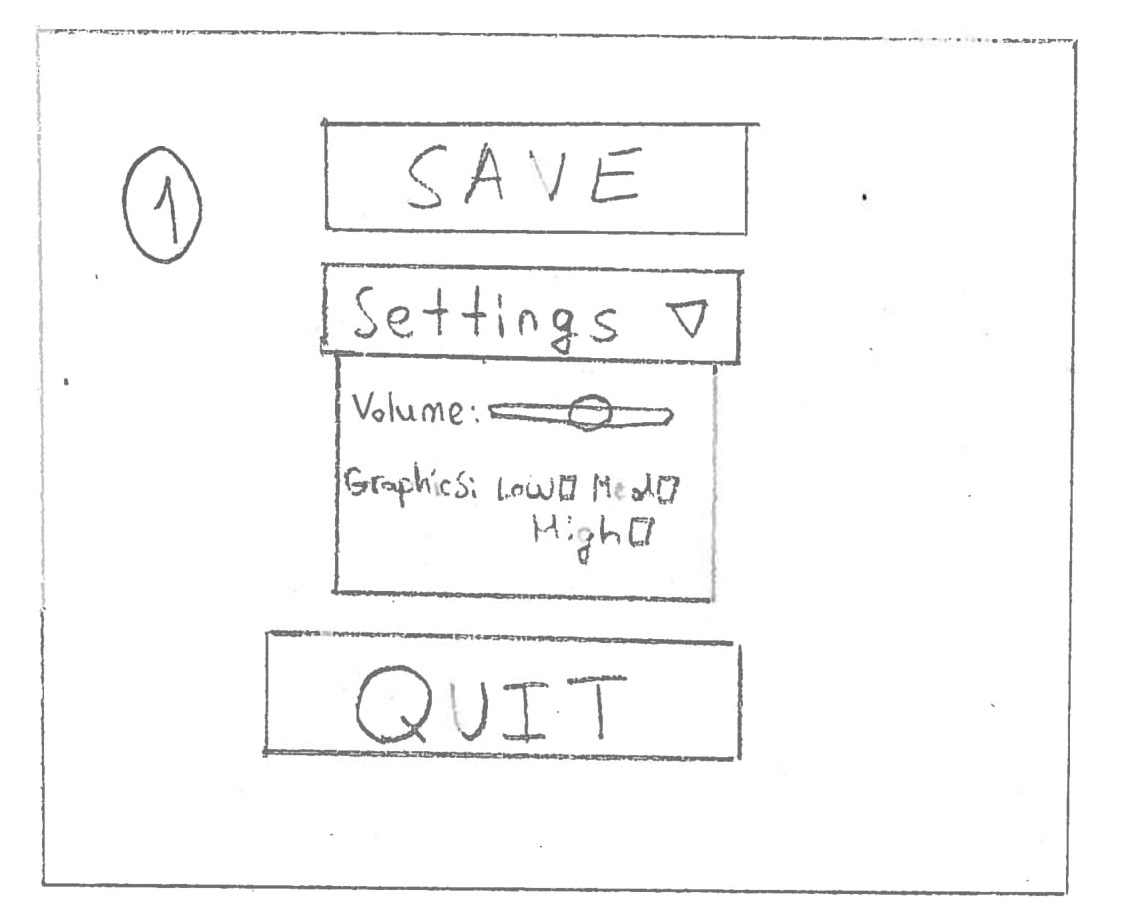 1
SAVE
Settings
Volume:
Graphics: Low Med
High
QUIT